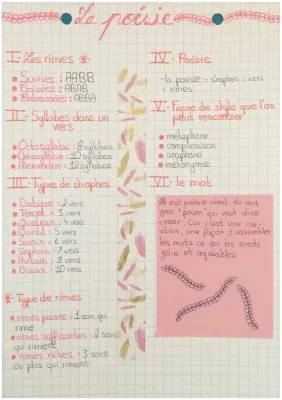 La poésie
I- Les rimes *
• Suivies : AABB
• Croisées : ABAB
• Embrassées : ABBA
II- Syllabes dans un
vers
• Octosyllabe : 8 syllabes
• Décasyllabe : 10 syllabes
• Alexandrin : 12 syllabes
III- Types de strophes
• Distique = 2 vers
• Tercet = 3 vers
• Quatrain = 4 vers
• Quintil = 5 vers
• Sizain = 6 vers
• Septain = 7 vers
• Huitain = 8 vers
• Dizain = 10 vers
* Type de rimes
• rimes pauvre = 1 son qui
rime
• rimes suffisantes = 2 sons
qui riment
• rimes riches = 3 sons
ou plus qui riment
IV- Poésie
- la poésie = strophes : vers
: rimes
V- Figure de style que l'on
peut rencontrer
• métaphore
• comparaison
• anaphore
• métonymie
VI- le mot
Le mot poésie vient du mot
grec "poiein" qui veut dire
créer. Car c'est une cré-
ation, une façon d'assembler
les mots ce qui les rends
jolie et agréables